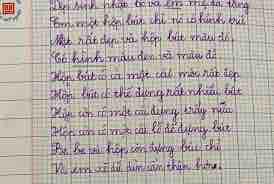 Dịp sinh nhật bố và em mẹ đã tặng
Em một hộp bút chì nó có hình trú
Nhật rất đẹp và hộp bút màu đỏ
Có hình màu đen và màu đỏ
Hộp bút có cả một cái móc rất đẹp
Hộp bút có thể đựng rất nhiều bút
Hộp còn có một cái đựng trấy nữa
Hộp còn có cái lỗ để đựng bút
Be be và hộp còn đựng bút chì
Và em sẽ dữ dìn cẩn thận hơn.